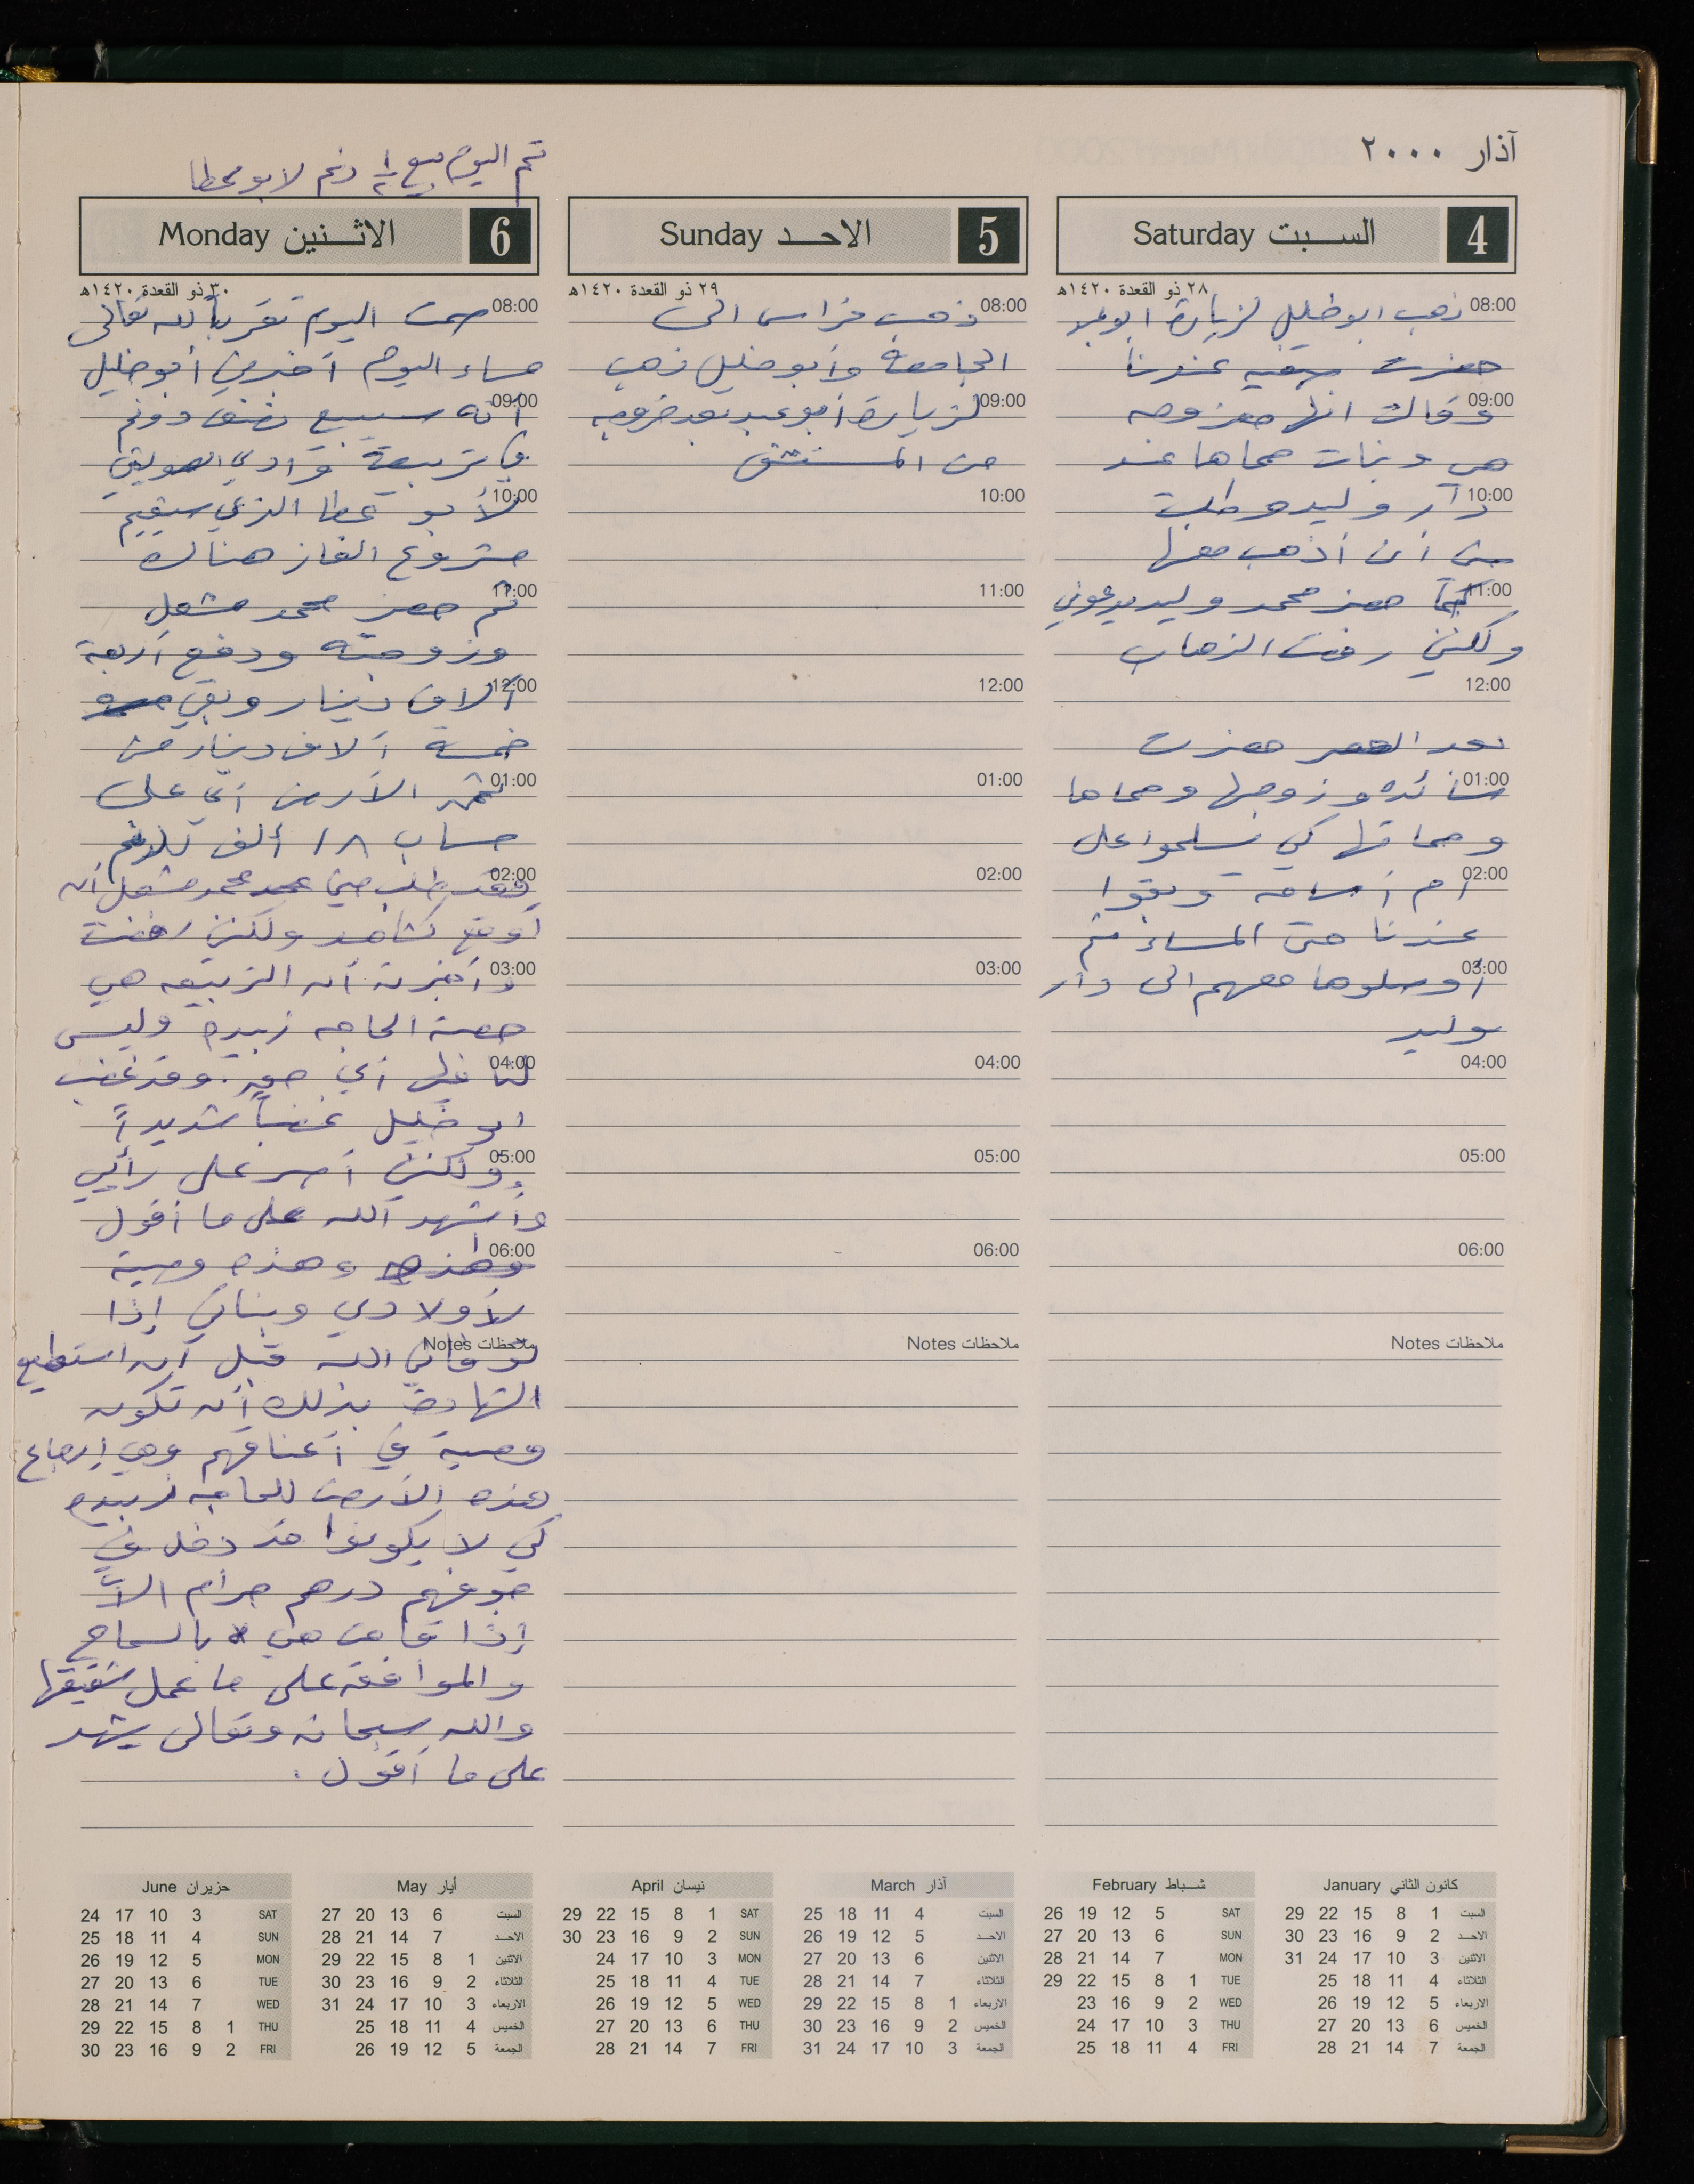 آذار ٢٠٠٠
4 السبت Saturday
٢٨ ذو القعدة ١٤٢٠هـ
08:00 ذهب ابو خليل لزيارة ابو عبد
حضرت صفيه عندنا
09:00 وقالت انها معزومه
هي وبنات حماها عند
10:00 دار وليد وطلبت
مني أن أذهب معها
11:00 كما حضر محمد وليد يدعوني
ولكنني رفضت الذهاب
12:00
بعد العصر حضرت
01:00 سائده وزوجها وحماها
وحماتها كي يسلموا على
02:00 أم أسامه وبقوا
عندنا حتى المساء ثم
03:00 أوصلوها معهم الى دار
وليد
04:00
05:00
06:00
ملاحظات Notes
5 الاحد Sunday
٢٩ ذو القعدة ١٤٢٠هـ
08:00 ذهب فراس الى
الجامعة وأبو خليل ذهب
09:00 لزيارة أبو عبد بعد خروجه
من المستشفى
10:00
11:00
12:00
01:00
02:00
03:00
04:00
05:00
06:00
ملاحظات Notes
تم اليوم بيع ١/٢ دنم لابو عطا
6 الاثنين Monday
٣٠ ذو القعدة ١٤٢٠هـ
08:00 صمت اليوم تقرباً لله تعالى
مساء اليوم أخبرني أبو خليل
09:00 أنه سيبيع نصف دونم
في تربيعة وادي
10:00 لأبو عطا الذي سيقيم
مشروع الغاز هناك
11:00 ثم حضر محمد مشعل
وزوجته ودفع أربعة
12:00 آلاف دينار وبقي
خمسة آلاف دينار من
01:00 ثمن الأرض أي على
حساب ١٨ ألف للدنم
02:00 فقد طلب مني محمد مشعل أن
أوقع كشاهد ولكنني رفضت
03:00 وأخبرته أن التربيعه هي
حصة الحاجه زبيده وليس
04:00 لنا فيها أي حق. وقد غضب
ابو خليل غضباً شديداً
05:00 ولكنني أصر على رأيي
وأشهد الله على ما أقول
06:00 وهذه وصية
لأولادي وبناتي إذا
ملاحظات Notes
توفاني الله قبل أن استطيع
الشهادة بذلك أن تكون
وصية في أعناقهم وهي إرجاع
هذه الأرض للحاجه زبيده
كي لا يكونوا قد دخل في
جوفهم درهم حرام الا
إذا قامت هي بالسماح
والموافقه على ما عمل شقيقها
والله سبحانه وتعالى يشهد
على ما أقول .
كانون الثاني January
السبت 1 8 15 22 29
الاحد 2 9 16 23 30
الاثنين 3 10 17 24 31
الثلاثاء 4 11 18 25
الاربعاء 5 12 19 26
الخميس 6 13 20 27
الجمعة 7 14 21 28
شباط February
SAT 5 12 19 26
SUN 6 13 20 27
MON 7 14 21 28
TUE 1 8 15 22 29
WED 2 9 16 23
THU 3 10 17 24
FRI 4 11 18 25
آذار March
السبت 4 11 18 25
الاحد 5 12 19 26
الاثنين 6 13 20 27
الثلاثاء 7 14 21 28
الاربعاء 1 8 15 22 29
الخميس 2 9 16 23 30
الجمعة 3 10 17 24 31
نيسان April
SAT 1 8 15 22 29
SUN 2 9 16 23 30
MON 3 10 17 24
TUE 4 11 18 25
WED 5 12 19 26
THU 6 13 20 27
FRI 7 14 21 28
أيار May
السبت 6 13 20 27
الاحد 7 14 21 28
الاثنين 1 8 15 22 29
الثلاثاء 2 9 16 23 30
الاربعاء 3 10 17 24 31
الخميس 4 11 18 25
الجمعة 5 12 19 26
حزيران June
SAT 3 10 17 24
SUN 4 11 18 25
MON 5 12 19 26
TUE 6 13 20 27
WED 7 14 21 28
THU 1 8 15 22 29
FRI 2 9 16 23 30